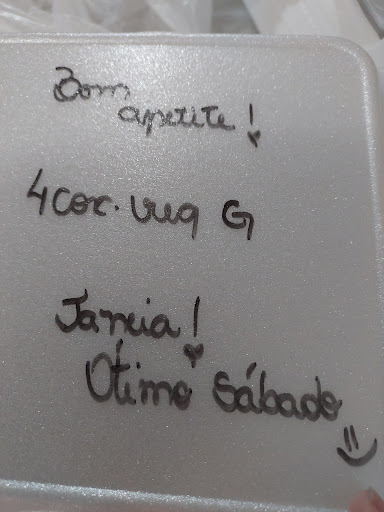 Bom
apetite!
4 cox. veg G
Janeia!
Ótimo Sábado